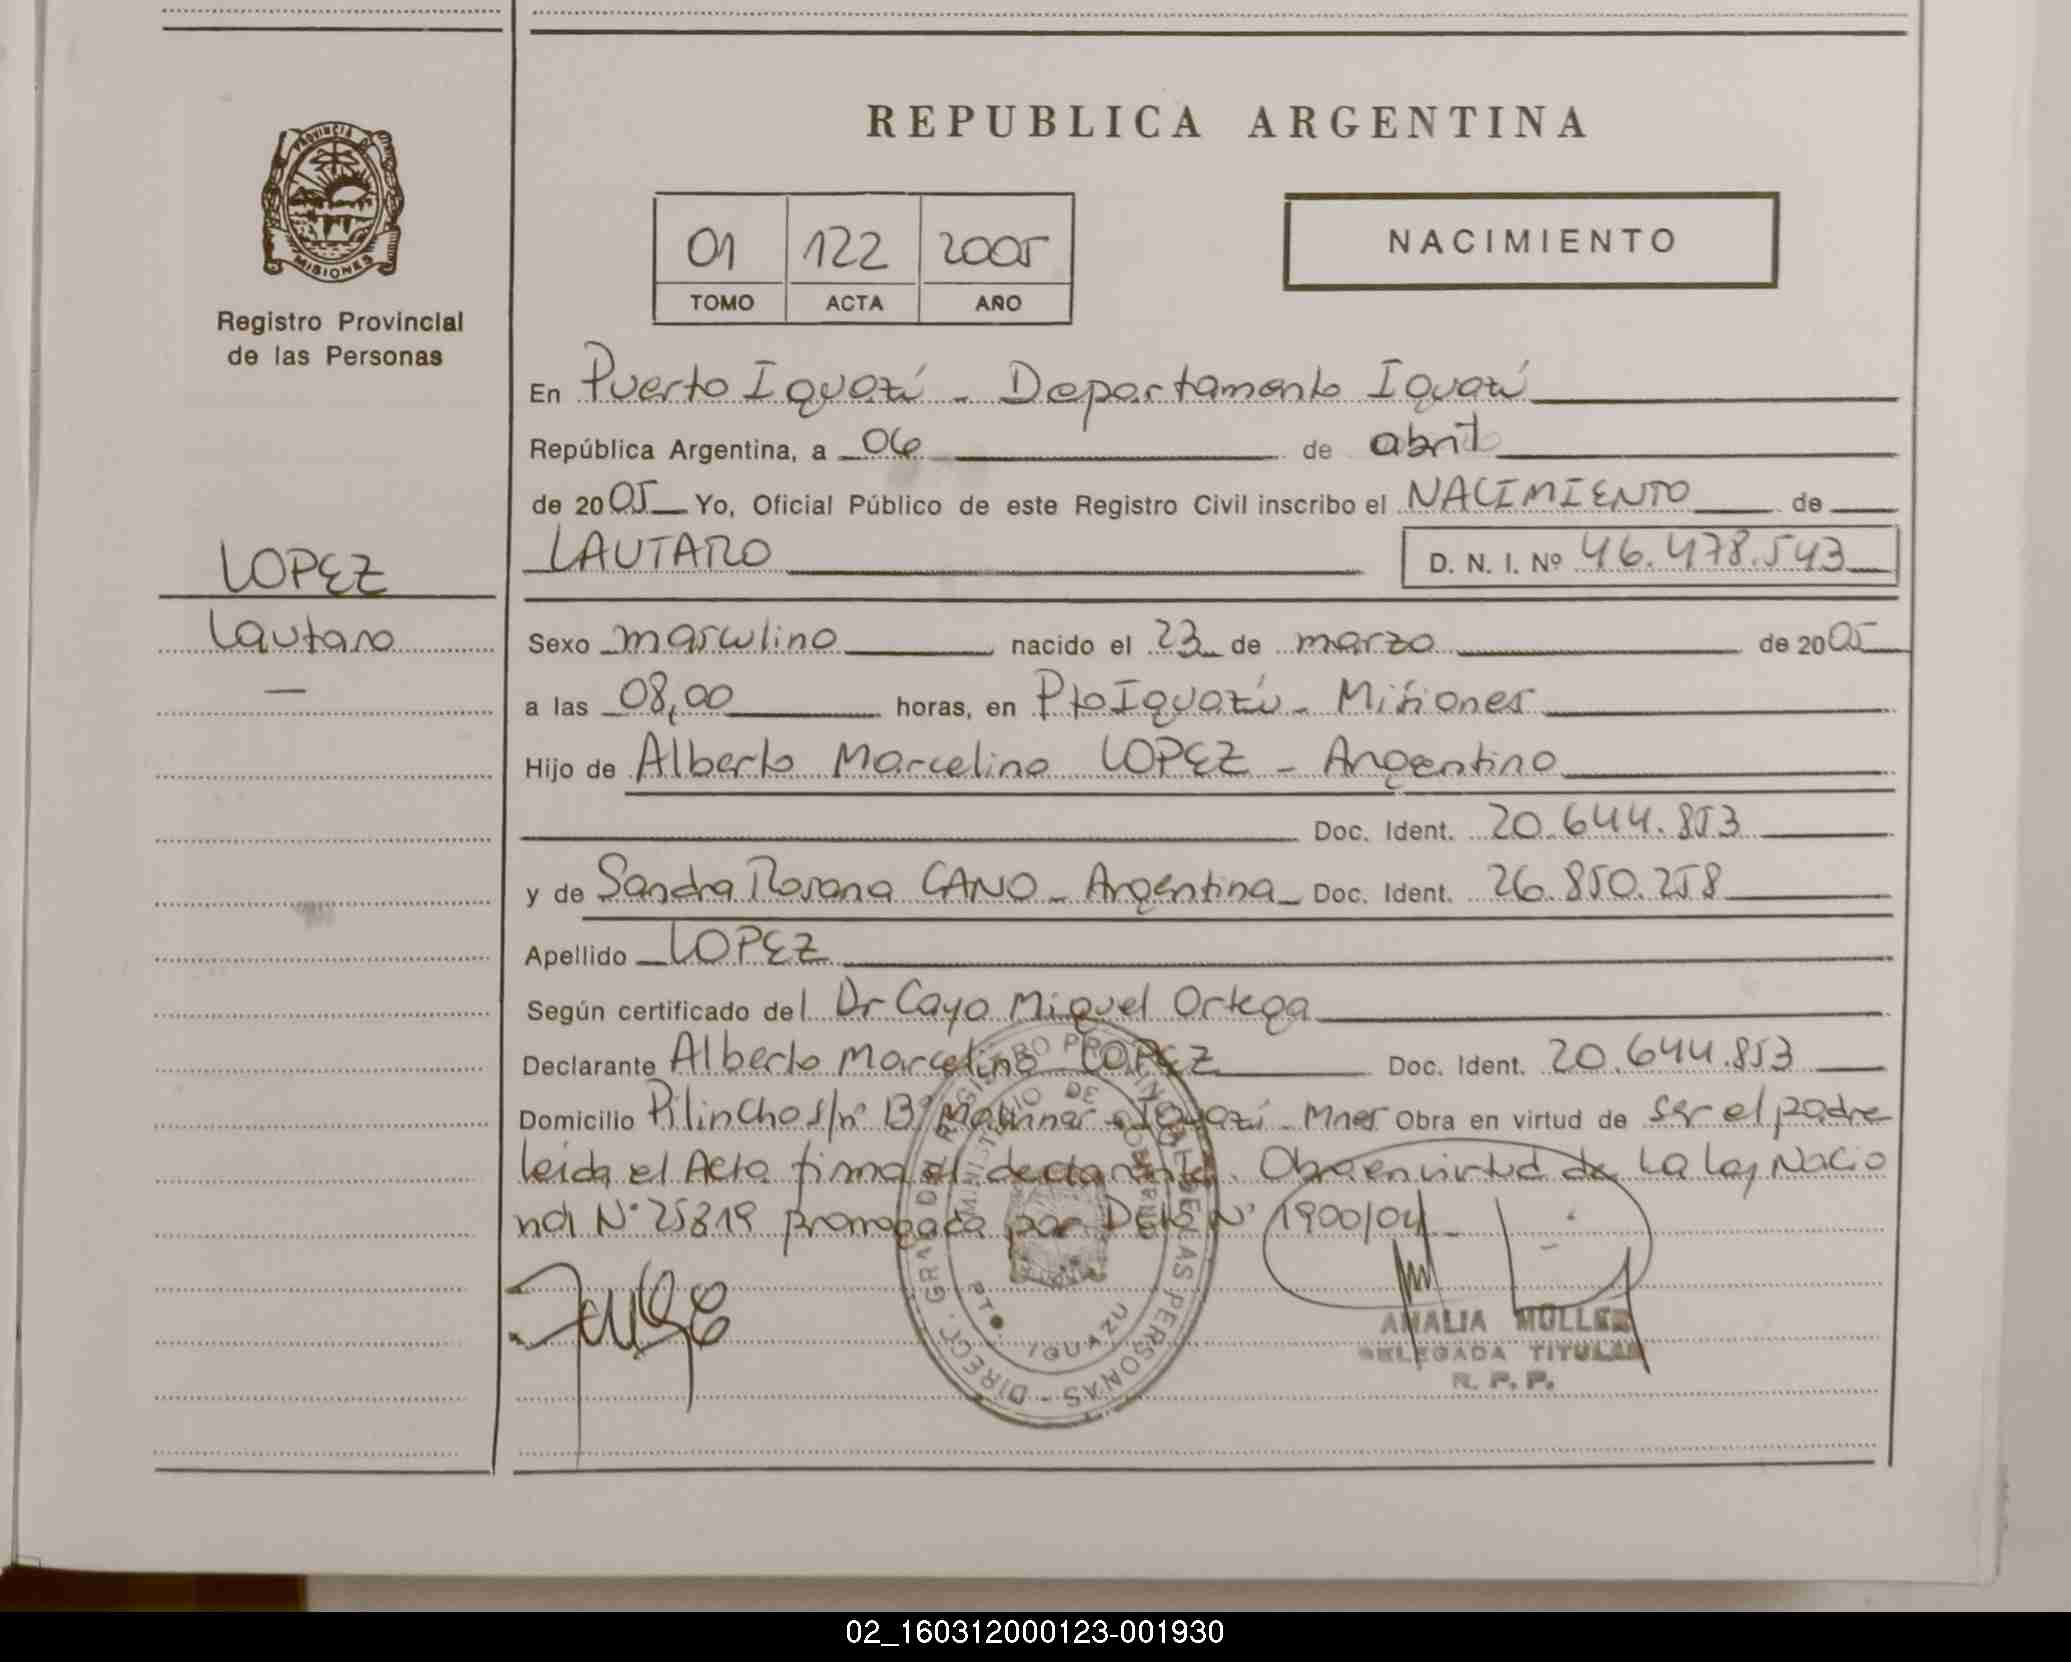 REPUBLICA ARGENTINA
PROVINCIA DE
MISIONES
Registro Provincial
de las Personas
01 122 2005
TOMO ACTA AÑO
NACIMIENTO
En Puerto Iguazú - Departamento Iguazú
República Argentina, a 06 de abril
de 2005 Yo, Oficial Público de este Registro Civil inscribo el NACIMIENTO de
LAUTARO D. N. I. Nº 46.478.543
LOPEZ
Lautaro
Sexo masculino nacido el 23 de marzo de 2005
a las 08,00 horas, en Pto Iguazú - Misiones
Hijo de Alberto Marcelino LOPEZ - Argentino
Doc. Ident. 20.644.853
y de Sandra Rosana CANO - Argentina - Doc. Ident. 26.850.258
Apellido LOPEZ
Según certificado del Dr Cayo Miguel Ortega
Declarante Alberto Marcelino LOPEZ Doc. Ident. 20.644.853
Domicilio Pilincho s/nº Bº Iguazú - Mnes Obra en virtud de ser el padre
leida el Acta firma el declarante. Obra en virtud de la Ley Nacio
nal Nº 25819 prorrogada por Dcto Nº 1900/04
DIRECC. GRAL DEL REGISTRO PROVINCIAL DE LAS PERSONAS -
MINISTERIO DE GOBIERNO
PTO. IGUAZU
AMALIA MULLER
DELEGADA TITULAR
R. P. P.
02_160312000123-001930